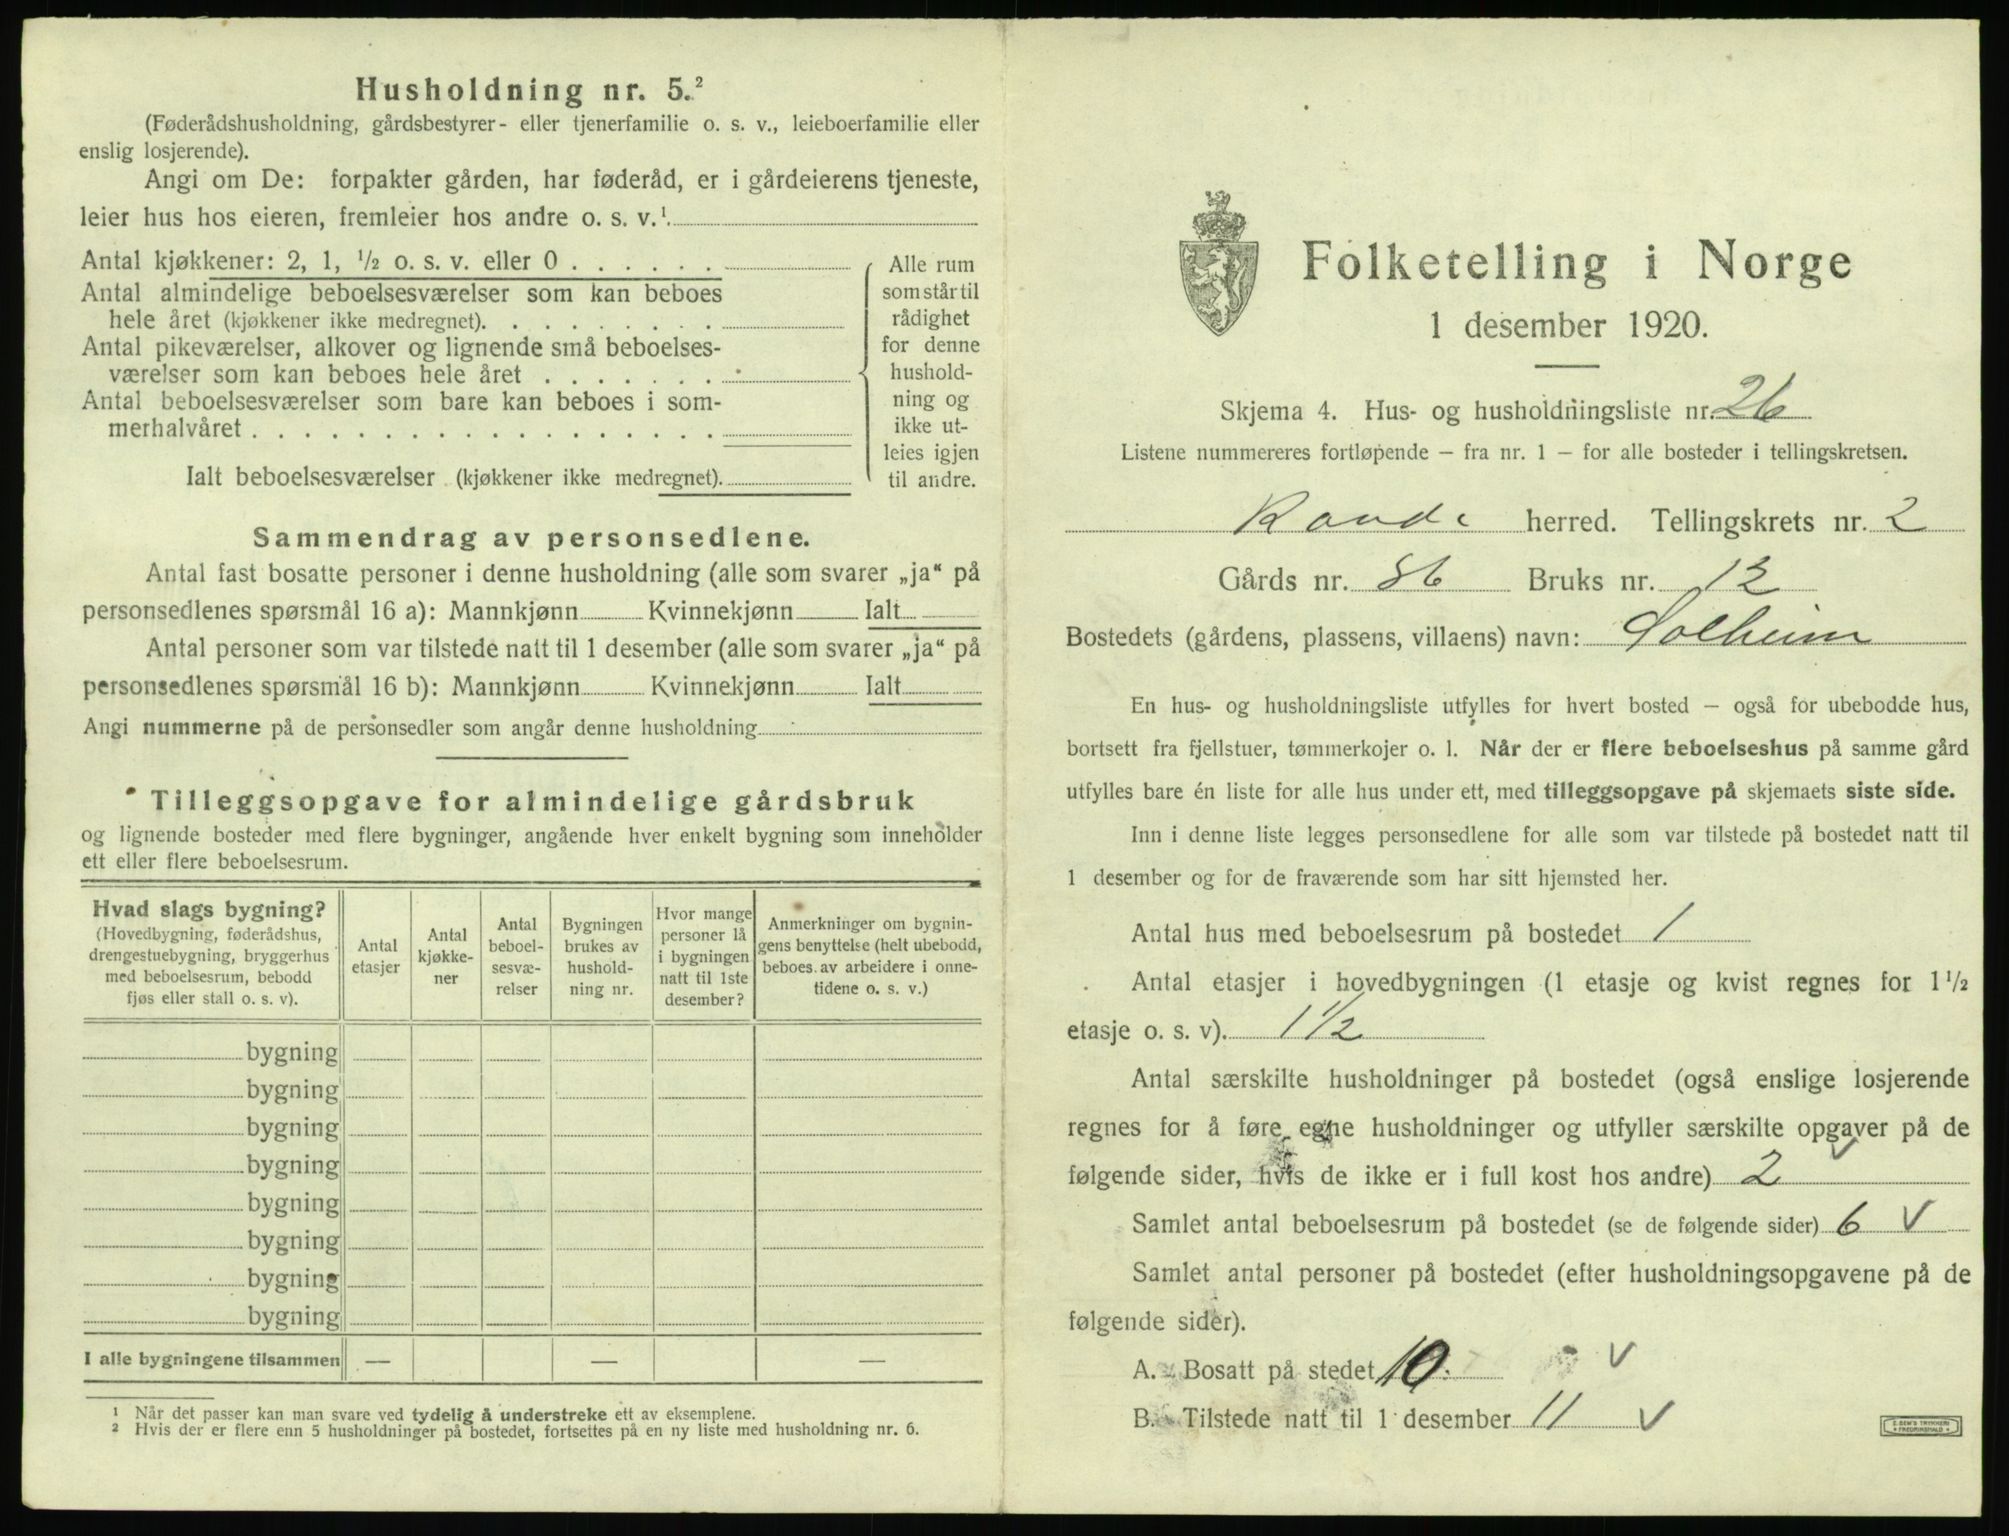 Husholdning nr. 5.²
(Føderådshusholdning, gårdsbestyrer- eller tjenerfamilie o. s. v., leieboerfamilie eller
enslig losjerende).
Angi om De: forpakter gården, har føderåd, er i gårdeierens tjeneste,
leier hus hos eieren, fremleier hos andre o. s. v.¹.
Antal kjøkkener: 2, 1, ½ o. s. v. eller 0 . . . . . .
Antal almindelige beboelsesværelser som kan beboes
hele året (kjøkkener ikke medregnet). . . . . . . . .
Antal pikeværelser, alkover og lignende små beboelses-
værelser som kan beboes hele året . . . . . . .
Antal beboelsesværelser som bare kan beboes i som-
merhalvåret . . . . . . . . . . . . . . . . . .
Ialt beboelsesværelser (kjøkkener ikke medregnet).
Alle rum
som står til
rådighet
for denne
hushold-
ning og
ikke ut-
leies igjen
til andre.
Sammendrag av personsedlene.
Antal fast bosatte personer i denne husholdning (alle som svarer „ja“ på
personsedlenes spørsmål 16 a): Mannkjønn Kvinnekjønn Ialt
Antal personer som var tilstede natt til 1 desember (alle som svarer „ja“ på
personsedlenes spørsmål 16 b): Mannkjønn Kvinnekjønn Ialt
Angi nummerne på de personsedler som angår denne husholdning
Tilleggsopgave for almindelige gårdsbruk
og lignende bosteder med flere bygninger, angående hver enkelt bygning som inneholder
ett eller flere beboelsesrum.
Hvad slags bygning?
(Hovedbygning, føderådshus,
drengestuebygning, bryggerhus
med beboelsesrum, bebodd
fjøs eller stall o. s. v).
Antal
etasjer
Antal
kjøkke-
ner
Antal
beboel-
sesvæ-
relser
Bygningen
brukes av
hushold-
ning nr.
Hvor mange
personer lå
i bygningen
natt til 1ste
desember?
Anmerkninger om bygnin-
gens benyttelse (helt ubebodd,
beboes av arbeidere i onne-
tidene o. s. v.)
bygning
bygning
bygning
bygning
bygning
bygning
bygning
bygning
I alle bygningene tilsammen — — —
¹ Når det passer kan man svare ved tydelig å understreke ett av eksemplene.
² Hvis der er flere enn 5 husholdninger på bostedet, fortsettes på en ny liste med husholdning nr. 6.
Folketelling i Norge
1 desember 1920.
Skjema 4. Hus- og husholdningsliste nr. 26
Listene nummereres fortløpende — fra nr. 1 — for alle bosteder i tellingskretsen.
Raade herred. Tellingskrets nr. 2
Gårds nr. 86 Bruks nr. 12
Bostedets (gårdens, plassens, villaens) navn: Solheim
En hus- og husholdningsliste utfylles for hvert bosted — også for ubebodde hus,
bortsett fra fjellstuer, tømmerkojer o. l. Når der er flere beboelseshus på samme gård
utfylles bare én liste for alle hus under ett, med tilleggsopgave på skjemaets siste side.
Inn i denne liste legges personsedlene for alle som var tilstede på bostedet natt til
1 desember og for de fraværende som har sitt hjemsted her.
Antal hus med beboelsesrum på bostedet 1
Antal etasjer i hovedbygningen (1 etasje og kvist regnes for 1½
etasje o. s. v). 1½
Antal særskilte husholdninger på bostedet (også enslige losjerende
regnes for å føre egne husholdninger og utfyller særskilte opgaver på de
følgende sider, hvis de ikke er i full kost hos andre) 2
Samlet antal beboelsesrum på bostedet (se de følgende sider) 6 v
Samlet antal personer på bostedet (efter husholdningsopgavene på de
følgende sider).
A. Bosatt på stedet 10 v
B. Tilstede natt til 1 desember 11 v
E. SEM'S TRYKKERI
FREDRIKSHALD